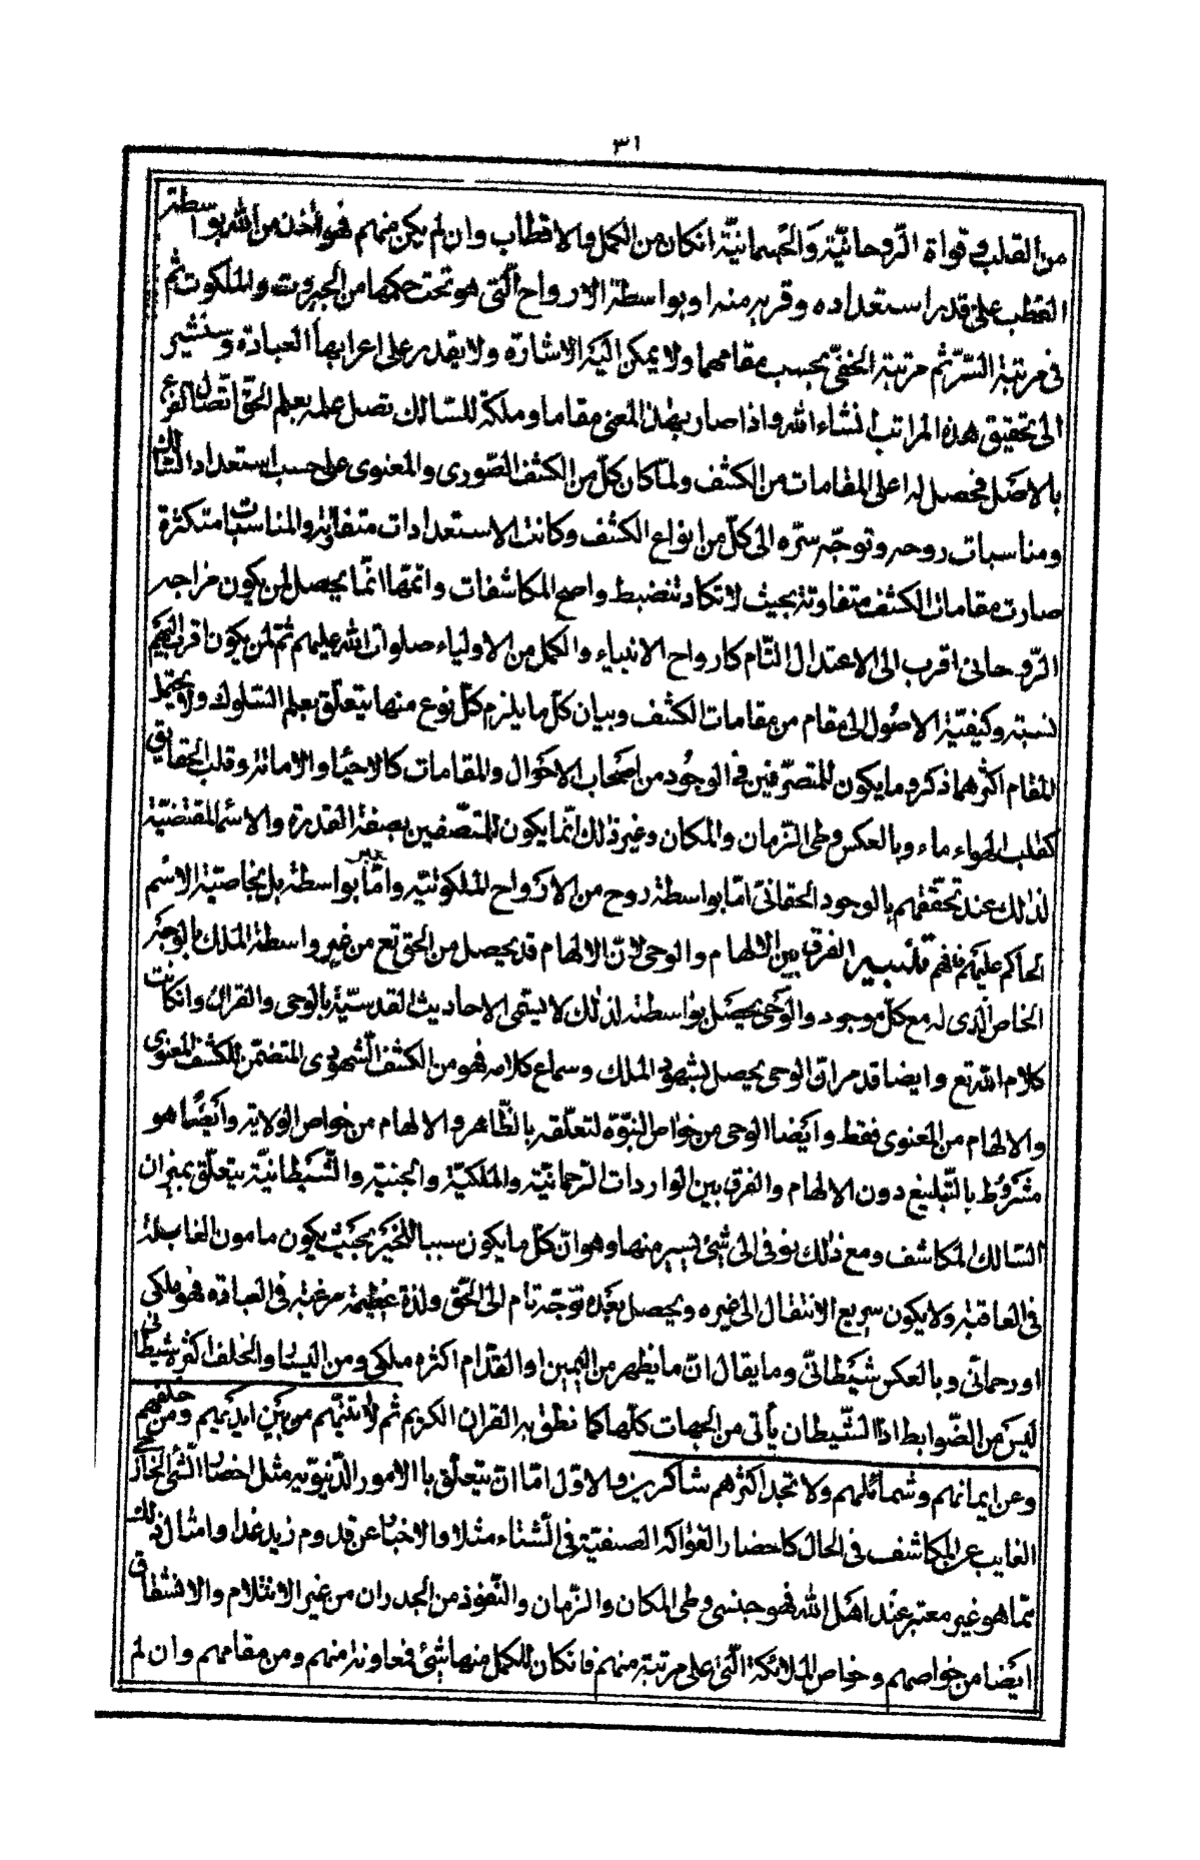 ٣١
من القلب وقواة الرّوحانيّة والجسمانيّة انكان من الكمل والاقطاب وان لم يكن منهم فهو أخذ من الله بواسطة
القطب على قدر استعداده وقربه منه او بواسطة الارواح الّتى هو تحت حكمها من الجبروت والملكوت ثم
فى مرتبة السّرّ ثم مرتبة الخفىّ بحسب مقامهما ولا يمكن اليه الاشارة ولا يقدر على اعرابها العبادة وسنشير
الى تحقيق هذه المراتب انشاء الله واذا صار يهذا المعنى مقاما وملكة للسّالك تصل علمه بعلم الحقّ اتّصال الفرع
بالاصل فحصل له اعلى المقامات من الكشف ولمّا كان كلّ من الكشف الصّورى والمعنوى على حسب استعداد السّالك
ومناسبات روحه وتوجّه سرّه الى كلّ من انواع الكشف وكانت الاستعدادات متفاوتة والمناسبات متكثرة
صارت مقامات الكشف متفاوتة بحيث لا تكاد تنضبط واصح المكاشفات واتمّها انّما يحصل لمن يكون مزاجه
الرّوحانى اقرب الى الاعتدال التّام كارواح الانبياء والكمل من الاولياء صلوات الله عليهم ثمّ لمن يكون اقرب اليهم
نسبة وكيفيّة الاصُول الى مقام من مقامات الكشف وبيان كلّ ما يلزم كلّ نوع منها يتعلّق بعلم السّلوك ولا يحتمل
المقام اكثر مما ذكر وما يكون للمتصرّفين فى الوجُود من اصحاب الاحوال والمقامات كالاحياء والاماتة وقلب الحقايق
كقلب الهواء ماء وبالعكس وطى الزّمان والمكان وغير ذلك انّما يكون للمتّصفين بصفة القدرة والاسماء المقتضيّة
لذلك عند تحقّقهم بالوجود الحقانىّ امّا بواسطة روح من الارواح الملكوتيّه وامّا بغير واسطة بل بخاصّية الاسم
الحاكم عليهم فافهم تنبيه الفرق بين الالهام والوحى لانّ الالهام قد يحصل من الحق تع من غير واسطة الملك بالوجه
الخاص الّذى له مع كلّ موجود والوحى يحصل بواسطته لذلك لا يسمى الاحاديث القدسيّة بالوحى والقران وانكانت
كلام الله تع وايضا قد مر انّ الوحى يحصل بشهود الملك وسماع كلامه فهو من الكشف الشّهودى المتضمّن للكشف المعنوى
والالهام من المعنوى فقط وايضا الوحى من خواص النبوّة لتعلّقه بالظّاهر والالهام من خواص الولاية وايضا هو
مشروط بالتّبليغ دون الالهام والفرق بين الواردات الرّحمانيّة والملكيّة والجنية والشّيطانيّة يتعلّق بميزان
السّالك المكاشف ومع ذلك نوفى الى شئ يسير منها وهو انّ كلّ ما يكون سببا للخير بحيث يكون مامون الغايلة
فى العاقبة ولا يكون سريع الانتقال الى غيره ويحصل بعده توجّه تام الى الحّق ولذة عظيمة مرغبة فى العبادة فهو ملكى
او رحمانىّ وبالعكس شيطانىّ وما يقال انّ ما يظهر من اليمين او القدّام اكثره ملكى ومن اليسار والخلف اكثره شيطانى
ليس من الضّوابط اذ الشّيطان يأتى من الجهات كلّها كما نطق به القران الكريم ثم لاتينّهم من بين ايديهم ومن خلفهم
وعن ايمانهم وشمائلهم ولا تجد اكثرهم شاكرين والاول امّا ان يتعلّق بالامور الدّنيويّة مثل احضار الشّئ الخارجى
الغايب عن المكاشف فى الحال كاحضار الفواكه الصيفيّة فى الشتاء مثلا والاخبار عن قدوم زيد غدا وامثال ذلك
ممّا هو غير معتبر عند اهل الله فهو جنسى وطى المكان والزّمان والنّفوذ من الجدران من غير الانثلام والانشقاق
ايضا من خواصهم وخواص الملائكة الّتى على مرتبة منهم فانكان للكمل منها شئ فمعاونة منهم ومن مقامهم وان لم